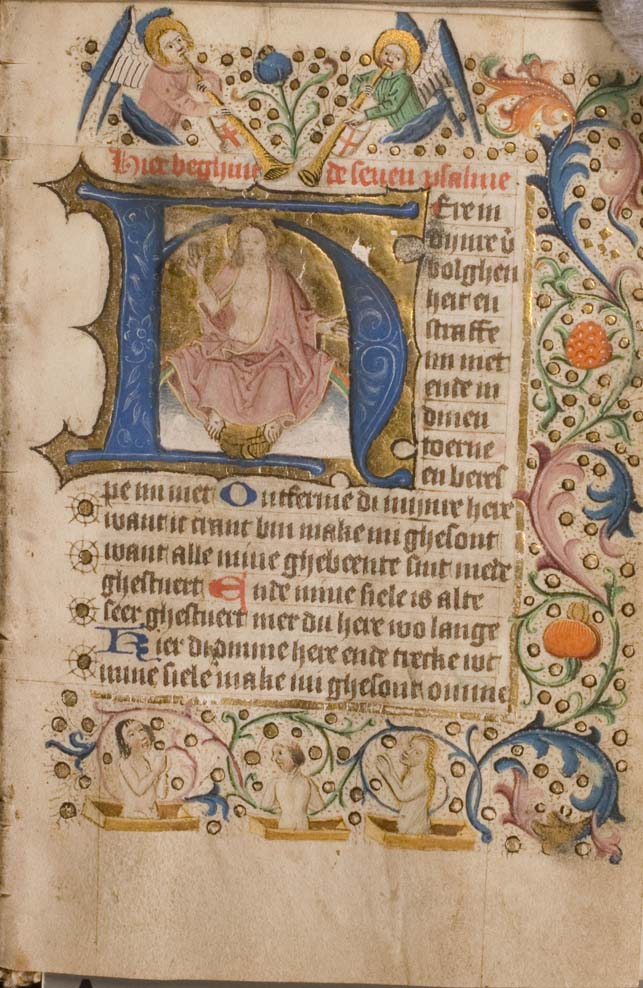 Hier beghint de seuen psalme
HEre in
dijnre v̄
bolghen
heit en
straffe
mi niet
ende in
dinen
toerne
en beres
pe mi niet Ontfermе di mijnre here
want ic cranc bin make mi ghesont
want alle mine ghebeente sint mede
ghestuert Ende mine siele is alte
seer ghestuert mer du here wo lange
Kier di omme here ende trecke wt
mine siele make mi ghesont omme